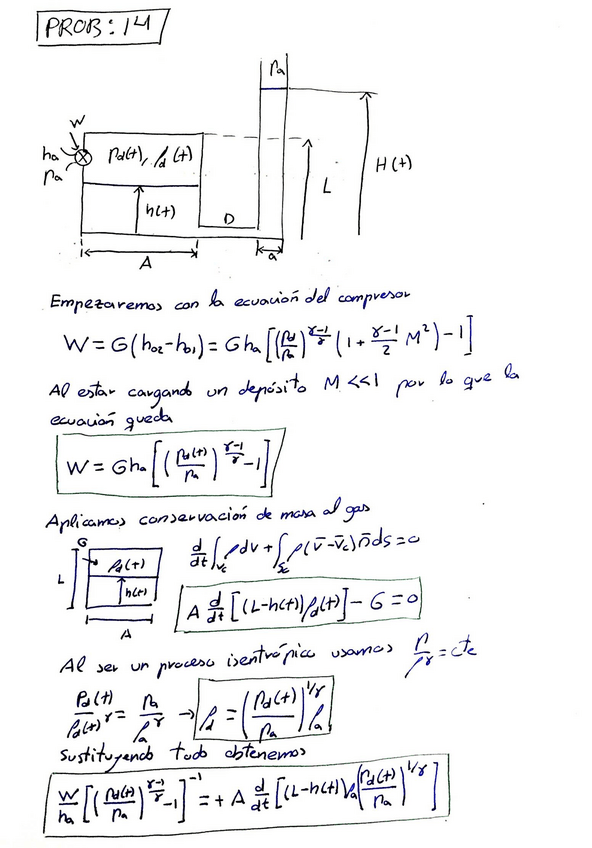 PROB: 14
Pa
W
ha
Pa
Pd(t), ρd(t)
h(t)
D
L
H(t)
A
a
Empezaremos con la ecuación del compresor
W = G(h02-h01) = Gha[(Pd/Pa)^((γ-1)/γ) (1 + (γ-1)/2 M²) - 1]
Al estar cargando un depósito M<<1 por lo que la
ecuación queda
W = Gha [(Pd(t)/Pa)^((γ-1)/γ) - 1]
Aplicamos conservación de masa al gas
G
L
ρd(t)
h(t)
A
d/dt ∫Vc ρdv + ∫Sc ρ(v̄-v̄c)n̄ds = 0
A d/dt [(L-h(t))ρd(t)] - G = 0
Al ser un proceso isentrópico usamos P/ρ^γ = cte
Pd(t)/ρd(t)^γ = Pa/ρa^γ → ρd = (Pd(t)/Pa)^(1/γ) ρa
Sustituyendo todo obtenemos
W/ha [(Pd(t)/Pa)^((γ-1)/γ) - 1]^-1 = + A d/dt [(L-h(t))ρa(Pd(t)/Pa)^(1/γ)]